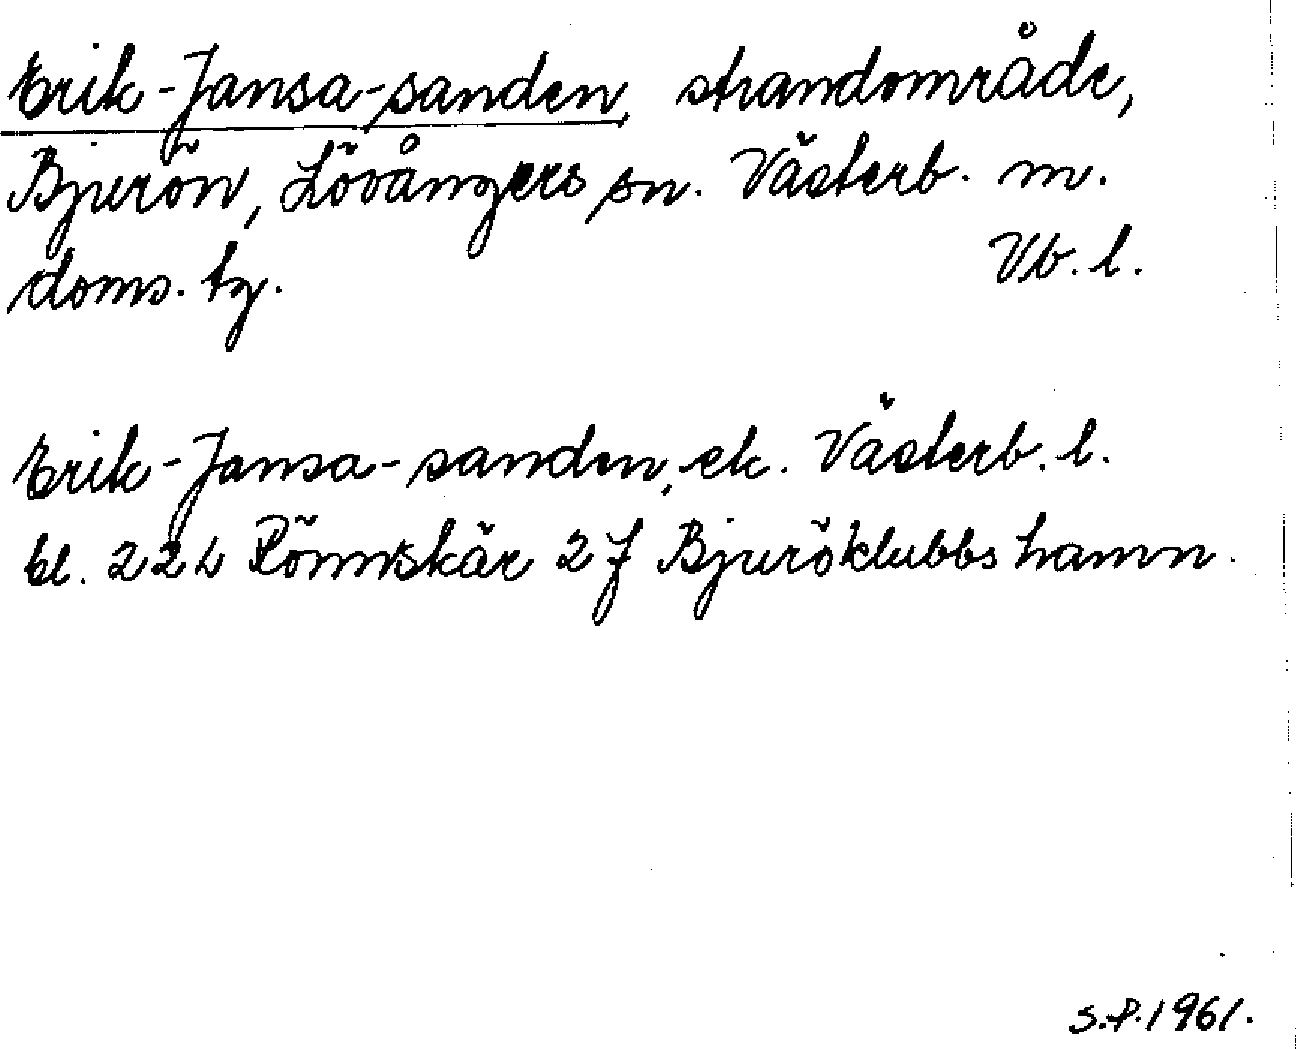 Erik-Jansa-sanden, strandområde,
Bjurön, Lövångers sn. Västerb. m.
doms. tg. Vb. l.
Erik-Jansa-sanden, ek. Västerb. l.
bl. 22L Rönnskär 2f Bjuröklubbs hamn.
S.P. 1961.